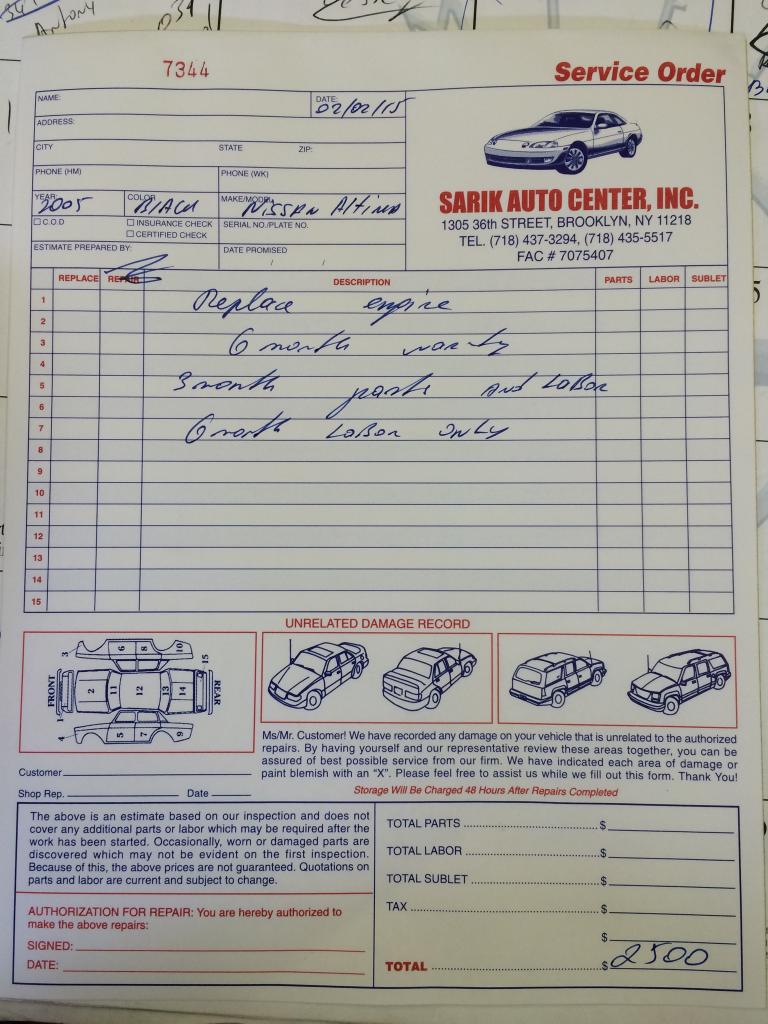 Antony
7344
Service Order
NAME:
DATE:
02/02/15
ADDRESS:
CITY STATE ZIP:
PHONE (HM) PHONE (WK)
YEAR: COLOR MAKE/MODEL
2005 Black Nissan Altima
C.O.D INSURANCE CHECK SERIAL NO./PLATE NO.
CERTIFIED CHECK
ESTIMATE PREPARED BY: DATE PROMISED
SARIK AUTO CENTER, INC.
1305 36th STREET, BROOKLYN, NY 11218
TEL. (718) 437-3294, (718) 435-5517
FAC # 7075407
REPLACE REPAIR DESCRIPTION PARTS LABOR SUBLET
1 Replace engine
2
3 6 month
4
5 3 month parts and Labor
6
7 6 month Labor only
8
9
10
11
12
13
14
15
UNRELATED DAMAGE RECORD
FRONT REAR
3 6 8 10 15
2 11 12 13 14
1 4 5 7 9
Ms/Mr. Customer! We have recorded any damage on your vehicle that is unrelated to the authorized
repairs. By having yourself and our representative review these areas together, you can be
assured of best possible service from our firm. We have indicated each area of damage or
paint blemish with an "X". Please feel free to assist us while we fill out this form. Thank You!
Customer
Shop Rep. Date
Storage Will Be Charged 48 Hours After Repairs Completed
The above is an estimate based on our inspection and does not
cover any additional parts or labor which may be required after the
work has been started. Occasionally, worn or damaged parts are
discovered which may not be evident on the first inspection.
Because of this, the above prices are not guaranteed. Quotations on
parts and labor are current and subject to change.
AUTHORIZATION FOR REPAIR: You are hereby authorized to
make the above repairs:
SIGNED:
DATE:
TOTAL PARTS $
TOTAL LABOR $
TOTAL SUBLET $
TAX $
$
TOTAL $ 2500